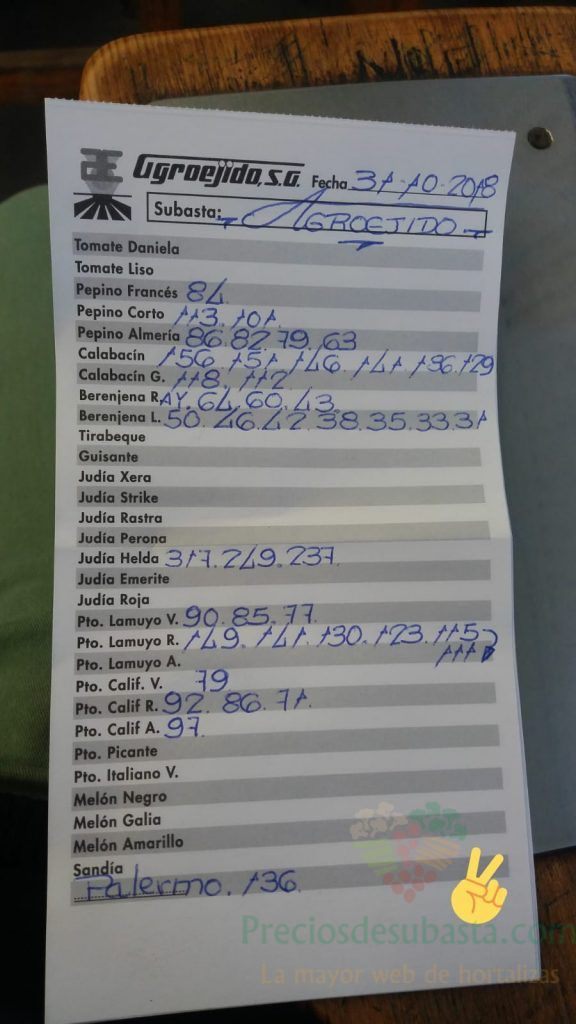 Œ Agroejido, S.A. Fecha 31-10-2018
Subasta: AGROEJIDO
Tomate Daniela
Tomate Liso
Pepino Francés 84
Pepino Corto 113. 101.
Pepino Almería 86.82.79.63
Calabacín 156 151. 146. 141. 136. 129
Calabacín G. 118. 112
Berenjena R.AY. 64. 60. 43.
Berenjena L. 50. 46.42. 38.35.33.31
Tirabeque
Guisante
Judía Xera
Judía Strike
Judía Rastra
Judía Perona
Judía Helda 317.249.237.
Judía Emerite
Judía Roja
Pto. Lamuyo V. 90. 85. 77.
Pto. Lamuyo R. 149. 141. 130. 123. 115
111
Pto. Lamuyo A.
Pto. Calif. V. 79
Pto. Calif R. 92. 86. 71.
Pto. Calif A. 97.
Pto. Picante
Pto. Italiano V.
Melón Negro
Melón Galia
Melón Amarillo
Sandía
Palermo. 136
Preciosdesubasta.com
La mayor web de hortalizas